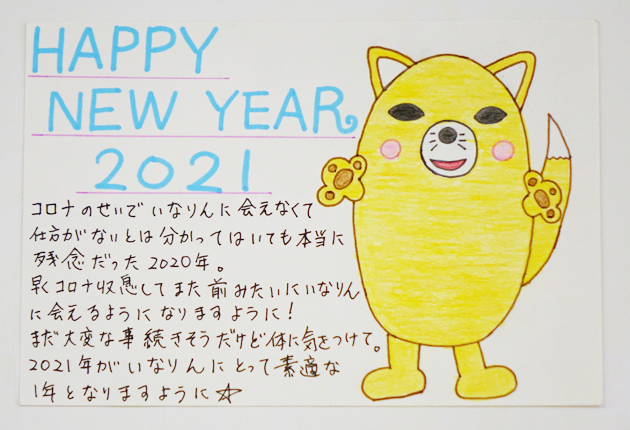 HAPPY
NEW YEAR
2021
コロナのせいでいなりんに会えなくて
仕方がないとは分かってはいても本当に
残念だった2020年。
早くコロナ収息してまた前みたいにいなりん
に会えるようになりますように!
まだ大変な事続きそうだけど体に気をつけて。
2021年がいなりんにとって素適な
1年となりますように☆